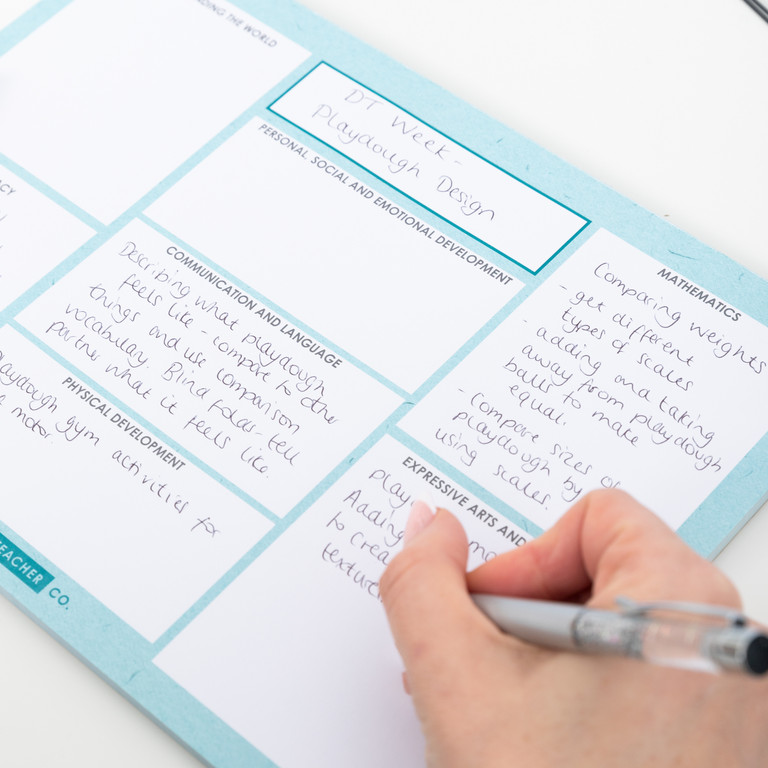 DING THE WORLD
DT Week -
Playdough Design
PERSONAL, SOCIAL AND EMOTIONAL DEVELOPMENT
CY
COMMUNICATION AND LANGUAGE
Describing what playdough
feels like - compare to other
things and use comparison
vocabulary. Blind folds - tell
partner what it feels like.
MATHEMATICS
Comparing weights
- get different
types of scales
- adding and taking
away from playdough
balls to make
equal.
- Compare sizes of
playdough by
using scales.
PHYSICAL DEVELOPMENT
playdough gym activities for
motor.
EXPRESSIVE ARTS AND
play
Adding
to crea
textur
TEACHER CO.